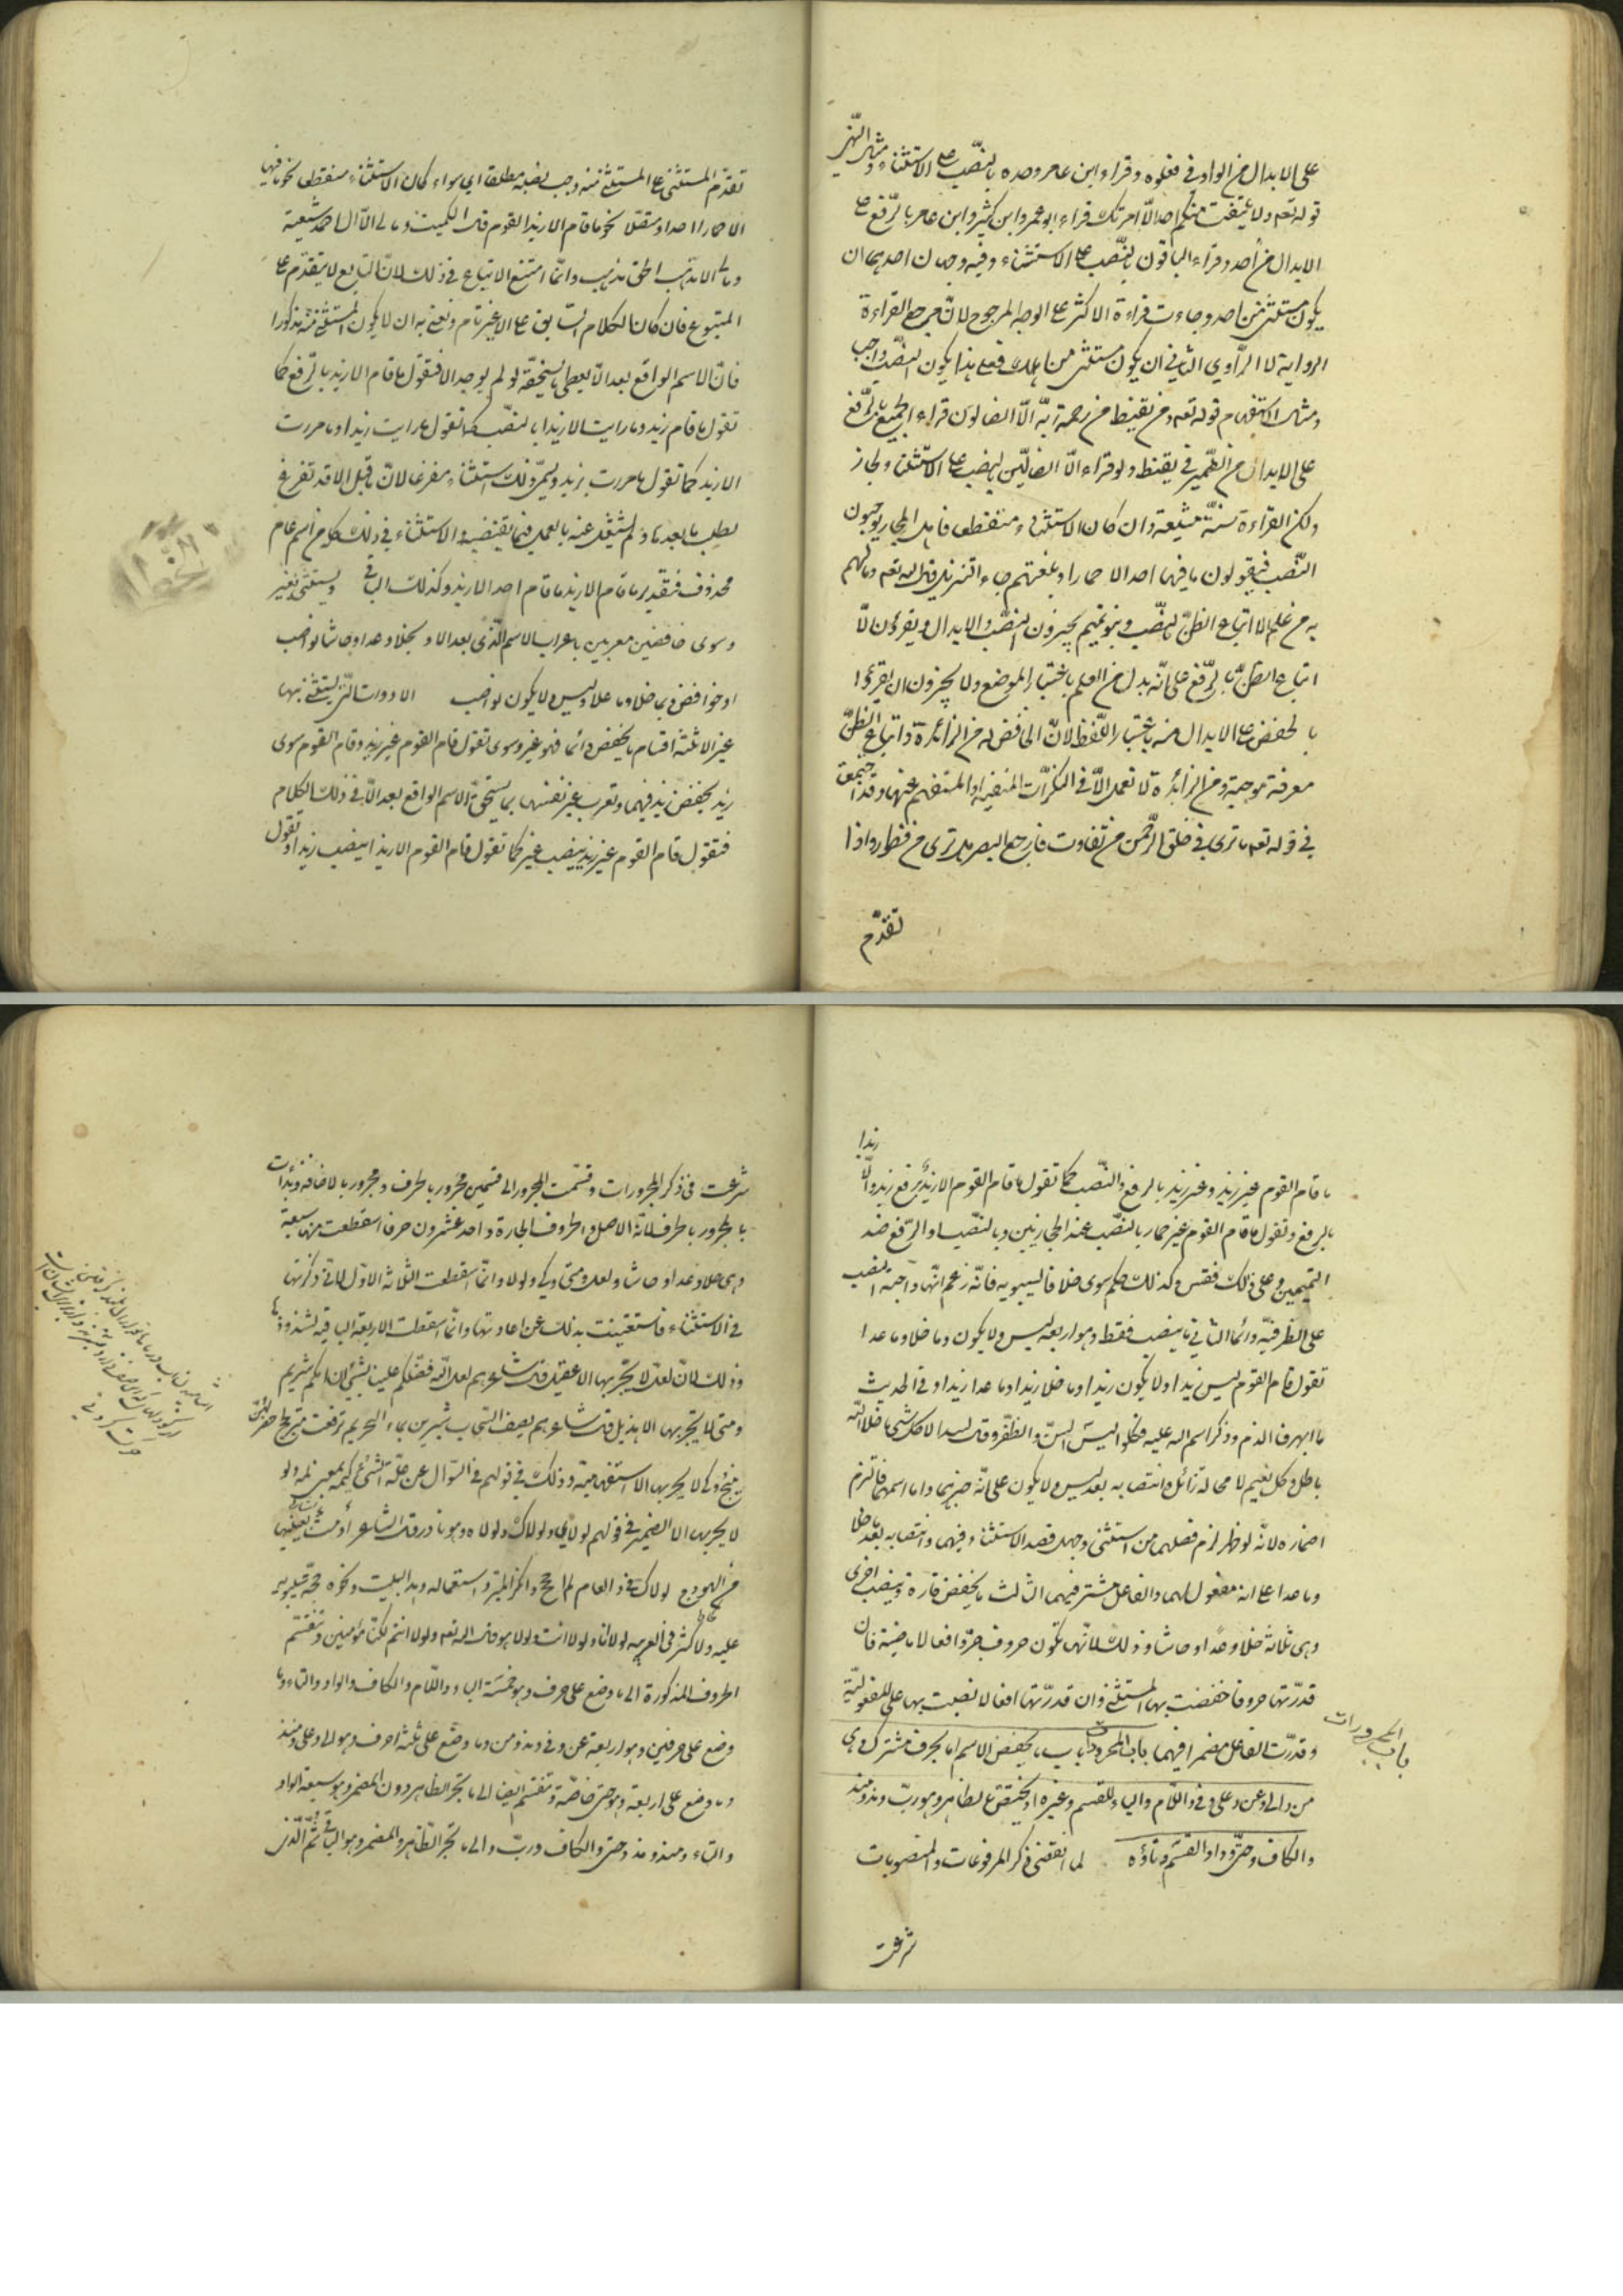 على الابدال من الواو في فعلوه وقراء ابن عامر وحده بالنصب على الاستثناء ومثال النهي
قوله تعم ولا يلتفت منكم احد الا امرأتك قراء ابو عمرو وابن كثير وابن عامر بالرفع على
الابدال من أحد وقراء الباقون بالنصب على الاستثناء وفيه وجهان احدهما ان
يكون مستثنى من احد وجاءت قراءة الاكثر على الوجه المرجوح لان مرجع القراءة
الرواية لا الراوي الثاني ان يكون مستثنى من اهلك فعلى هذا يكون النصب واجب
ومثال الاستفهام قوله تعم ومن يقنط من رحمة ربه الا الضالون قراء الجميع بالرفع
على الابدال من الضمير في يقنط ولو قراء الا الضالين بالنصب على الاستثناء لجاز
ولكن القراءة سنة متبعة وان كان الاستثناء منقطعا فاهل الحجاز يوجبون
النصب فيقولون ما فيها احد الا حمارا وبلغتهم جاء التنزيل قال الله تعم وما لهم
به من علم الا اتباع الظن بالنصب وبنو تميم يجيزون النصب والابدال ويقرؤن الا
اتباع الظن بالرفع على انه بدل من العلم باعتبار الموضع ولا يجوزون ان يقرؤا
بالخفض على الابدال منه باعتبار اللفظ لان الخافض له من الزائدة واتباع الظن
معرفة موجبة ومن الزائدة لا تعمل الا في المنكرات المنفية او المستفهم عنها وقد اجتمعت
في قوله تعم ما ترى في خلق الرحمن من تفاوت فارجع البصر هل ترى من فطور واذا
تقدم
تقدم المستثنى على المستثنى منه وجب نصبه مطلقا اي سواء كان الاستثناء منقطعا نحو ما فيها
الا حمارا احد او متصلا نحو ما قام الا زيدا القوم قال الكميت وما لي الا آل احمد شيعة
وما لي الا مذهب الحق مذهب وانما امتنع الاتباع في ذلك لان التابع لا يتقدم على
المتبوع فان كان الكلام السابق على الا غير تام ونعني به ان لا يكون المستثنى منه مذكورا
فان الاسم الواقع بعد الا يعطى ما يستحقه لو لم يوجد الا فتقول ما قام الا زيد بالرفع كما
تقول ما قام زيد وما رايت الا زيدا بالنصب كما تقول ما رايت زيدا وما مررت
الا بزيد كما تقول ما مررت بزيد ويسمى ذلك استثناء مفرغا لان ما قبل الا قد تفرغ
لطلب ما بعدها ولم يشتغل عنه بالعمل فيما يقتضيه والاستثناء في ذلك كله من اسم عام
محذوف فتقدير ما قام الا زيد ما قام احد الا زيد وكذلك الباقي ويستثنى بغير
وسوى خافضين معربين باعراب الاسم الذي بعد الا وبخلا وعدا وحاشا نواصب
او خوافض وبما خلا وما عدا وليس ولا يكون نواصب الادوات التي يستثنى بها
غير الا ثلثة اقسام ما يخفض دائما فهو غير وسوى تقول قام القوم غير زيد وقام القوم سوى
زيد بخفض زيد فيهما وتعرب غير نفسها بما يستحقه الاسم الواقع بعد الا في ذلك الكلام
فتقول قام القوم غير زيد بنصب غير كما تقول قام القوم الا زيدا بنصب زيد وتقول
زيدا
ما قام القوم غير زيد وغير زيد بالرفع والنصب كما تقول ما قام القوم الا زيد برفع زيد والا
بالرفع وتقول ما قام القوم غير حمار بالنصب عند الحجازيين وبالنصب او الرفع عند
التميميين وعلى ذلك فقس وكذلك حكم سوى خلافا لسيبويه فانه زعم انها واجبة النصب
على الظرفية دائما الثاني ما ينصب فقط وهو اربعة ليس ولا يكون وما خلا وما عدا
تقول قام القوم ليس زيدا ولا يكون زيدا وما خلا زيدا وما عدا زيدا وفي الحديث
ما انهر الدم وذكر اسم الله عليه فكلوا ليس السن والظفر وقال لبيد الا كل شيء ما خلا الله
باطل وكل نعيم لا محالة زائل وانتصابه بعد ليس ولا يكون على انه خبرهما واما اسمهما فالتزم
اضماره لانه لو ظهر لزم فصلهما من المستثنى وجهل قصد الاستثناء فيهما وانتصابه بعد ما خلا
وما عدا على انه مفعول لهما والفاعل مستتر فيهما الثالث ما يخفض تارة وينصب اخرى
وهي ثلاثة خلا وعدا وحاشا وذلك لانها تكون حروف جر وافعالا ماضية فان
قدرتها حروفا خفضت بها المستثنى وان قدرتها افعالا نصبت بها على المفعولية
وقدرت الفاعل مضمرا فيها باب المجرورات باب يخفض الاسم اما بحرف مشترك وهي
باب المجرورات
من والى وعن وعلى وفي واللام والباء للقسم وغيره او يختص بالظاهر وهو رب ومذ ومنذ
والكاف وحتى وواو القسم وتاؤه لما انقضى ذكر المرفوعات والمنصوبات
شرعت
شرعت في ذكر المجرورات وقسمت المجرور الى قسمين مجرور بالحرف ومجرور بالاضافة وبدأت
بالمجرور بالحرف لانه الاصل والحروف الجارة واحد عشرون حرفا اسقطت منها سبعة
وهي خلا وعدا وحاشا ولعل ومتى وكي ولولا وانما اسقطت الثلاثة الاول لاني ذكرتها
في الاستثناء فاستغنيت بذلك عن اعادتها وانما اسقطت الاربعة الباقية لشذوذها
وذلك لان لعل لا يجر بها الا عقيل قال شاعرهم لعل الله فضلكم علينا بشيء ان امكم شريم
ومتى لا يجر بها الا هذيل قال شاعرهم يصف السحاب شربن بماء البحر ثم ترفعت متى لجج خضر لهن
نئيج وكي لا يجر بها الا ما الاستفهامية وذلك في قولهم في السؤال عن علة الشيء كيمه بمعنى لمه ولولا
لا يجر بها الا الضمير في قولهم لولاي ولولاك ولولاه وهو نادر قال الشاعر أومت بعينيها
من الهودج لولاك في ذا العام لم احجج وانكر المبرد استعماله وهذا البيت ونحوه حجة لسيبويه
عليه والاكثر في العربية لولا انا ولولا انت ولولا هو قال الله تعم ولولا انتم لكنا مؤمنين وتنقسم
الحروف المذكورة الى ما وضع على حرف وهو خمسة الباء واللام والكاف والواو والتاء وما
وضع على حرفين وهو اربعة عن وفي ومذ ومن وما وضع على ثلثة احرف وهو الى وعلى ومنذ
وما وضع على اربعة وهو حتى خاصة وتنقسم ايضا الى ما يجر الظاهر دون المضمر وهو سبعة الواو
والتاء ومنذ ومذ وحتى والكاف ورب والى ما يجر الظاهر والمضمر وهو الباقي ثم الذي